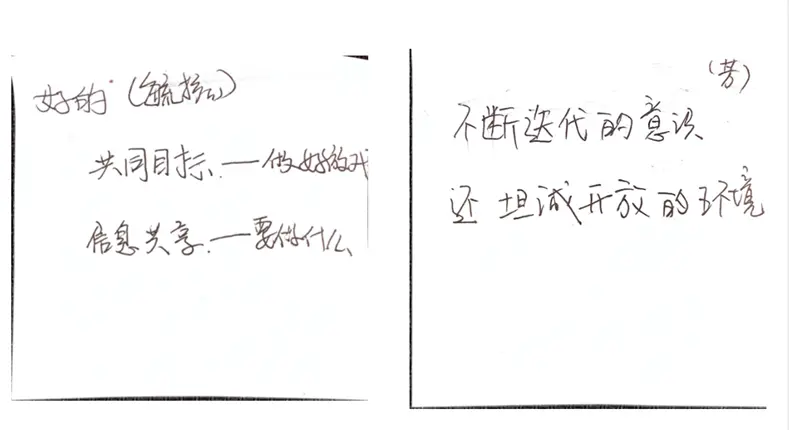 好的
共同目标.一做好游戏
信息共享.一要做什么
(芳)
不断迭代的意识
还 坦诚开放的环境